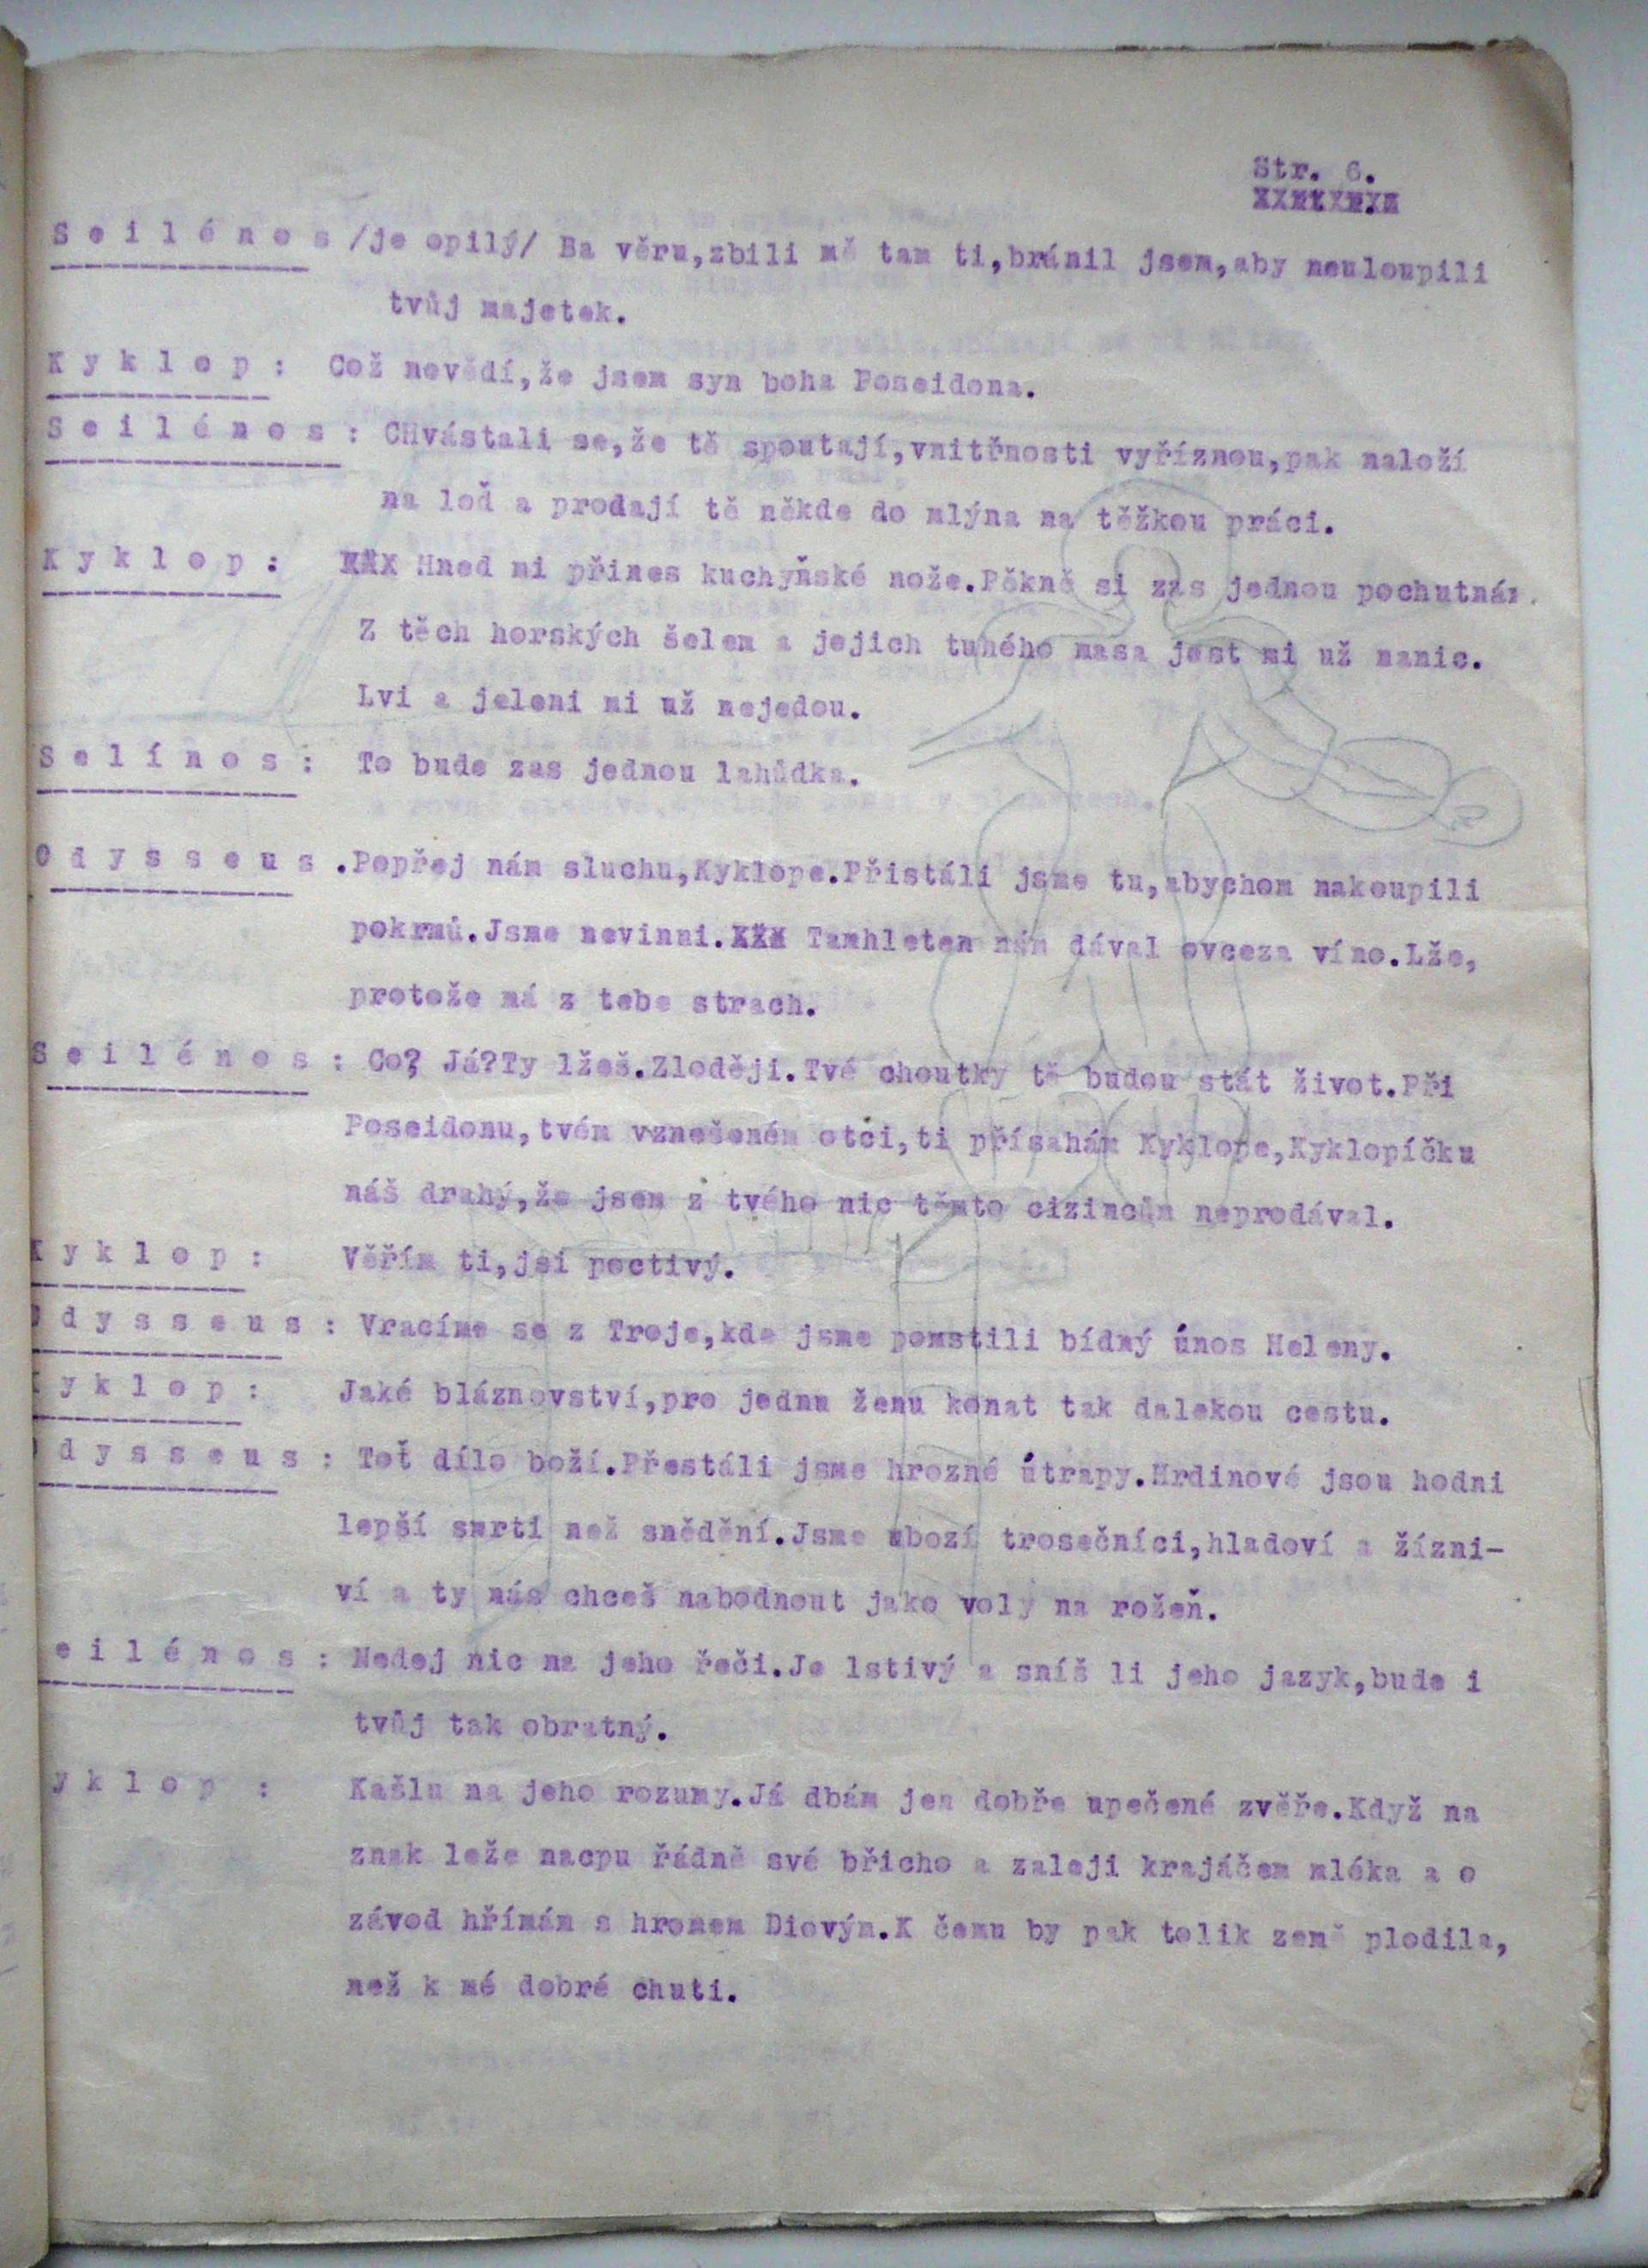 Str. 6.
S e i l é n o s /je opilý/ Ba věru,zbili mě tam ti,bránil jsem,aby neuloupili
tvůj majetek.
K y k l o p : Což nevědí,že jsem syn boha Poseidona.
S e i l é n o s : CHvástali se,že tě spoutají,vnitřnosti vyříznou,pak naloží
na loď a prodají tě někde do mlýna na těžkou práci.
K y k l o p : Hned mi přines kuchyňské nože.Pěkně si zas jednou pochutnám.
Z těch horských šelem a jejich tuhého masa jest mi už nanic.
Lvi a jeleni mi už nejedou.
S e l í n o s : To bude zas jednou lahůdka.
O d y s s e u s .Popřej nám sluchu,Kyklope.Přistáli jsme tu,abychom nakoupili
pokrmů.Jsme nevinni. Tamhleten nám dával ovceza víno.Lže,
protože má z tebe strach.
S e i l é n o s : Co? Já?Ty lžeš.Zloději.Tvé choutky tě budou stát život.Při
Poseidonu,tvém vznešeném otci,ti přísahám Kyklope,Kyklopíčku
náš drahý,že jsem z tvého nic těmto cizincům neprodával.
K y k l o p : Věřím ti,jsi poctivý.
O d y s s e u s : Vracíme se z Troje,kde jsme pomstili bídný únos Heleny.
K y k l o p : Jaké bláznovství,pro jednu ženu konat tak dalekou cestu.
O d y s s e u s : Toť dílo boží.Přestáli jsme hrozné útrapy.Hrdinové jsou hodni
lepší smrti než snědění.Jsme ubozí trosečníci,hladoví a žízni-
ví a ty nás chceš nabodnout jako voly na rožeň.
e i l é n o s : Nedej nic na jeho řeči.Je lstivý a sníš li jeho jazyk,bude i
tvůj tak obratný.
y k l o p : Kašlu na jeho rozumy.Já dbám jen dobře upečené zvěře.Když na
znak leže nacpu řádně své břicho a zaleji krajáčem mléka a o
závod hřímám s hromem Diovým.K čemu by pak tolik země plodila,
než k mé dobré chuti.